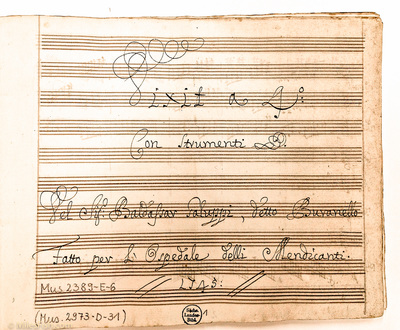 Dixit a 4º:
Con Strumenti
Del Sigr. Baldassar Galuppi, detto Buranello
Fatto per L'Ospedale delli Mendicanti.
1745:
Mus. 2389-E-6
(Mus. 2973-D-31)
Sächs.
Landes-
Bibl.
1